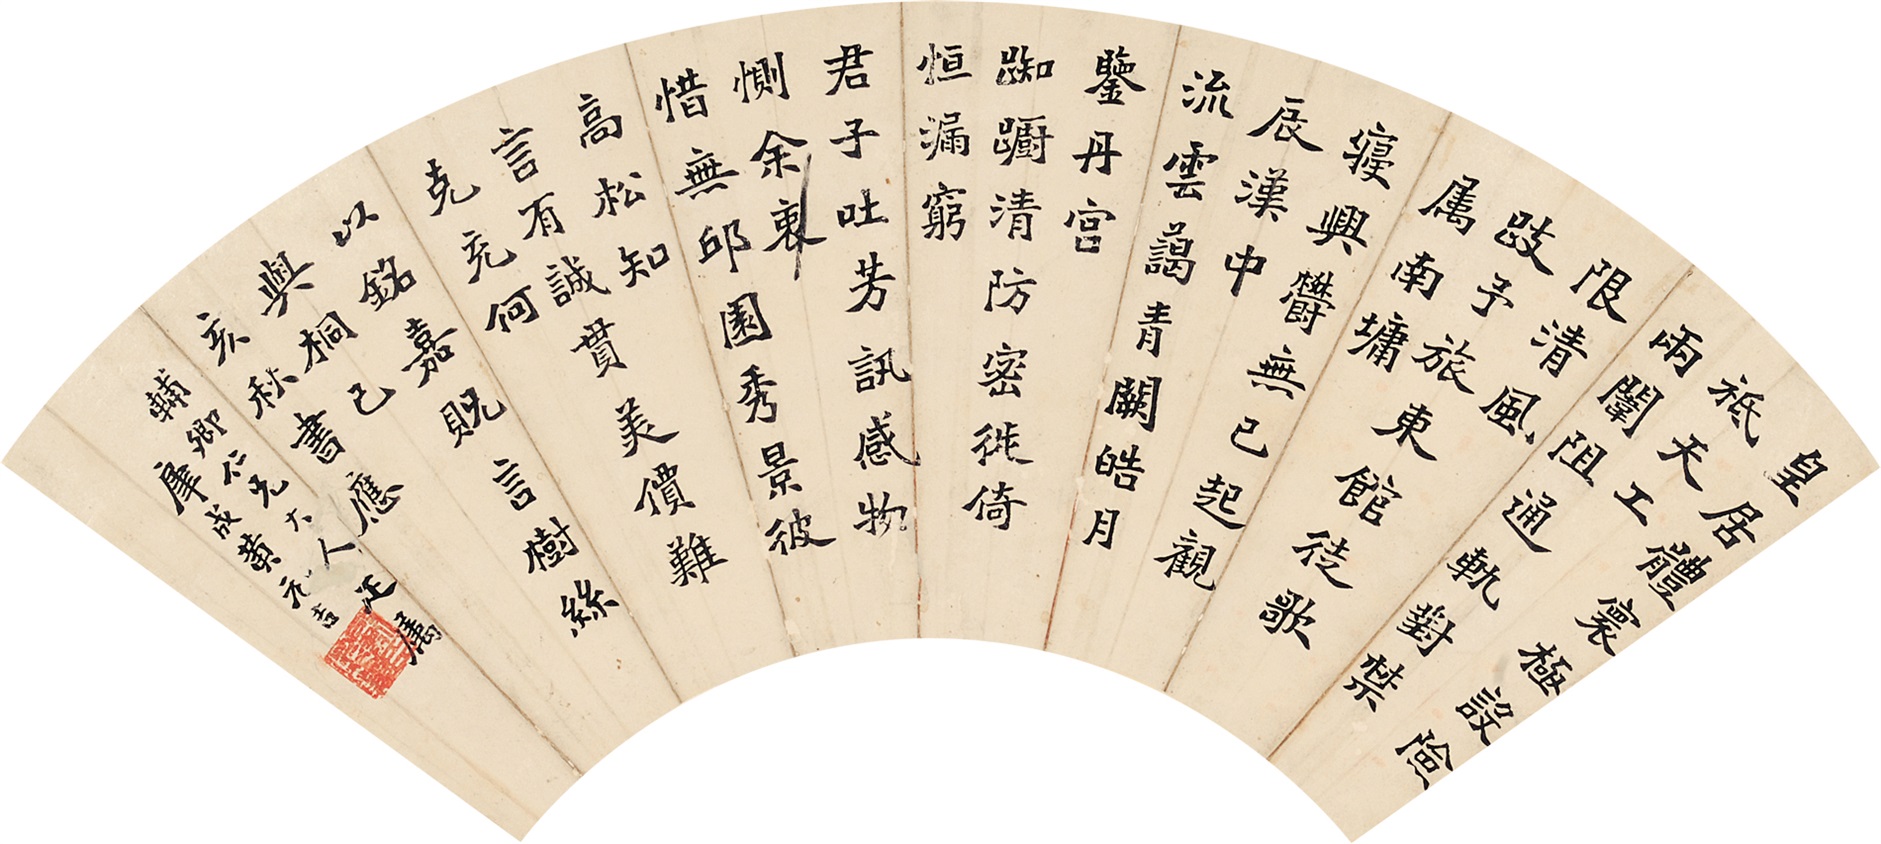 皇居體寰極設險
祗天工
兩闈阻通軌對禁
限清風
跂予旅東館徒歌
属南墉
寢興欝無已起觀
辰漢中
流雲藹青闕皓月
鑒丹宮
踟躕清防密徙倚
恒漏窮
君子吐芳訊感物
惻余衷
惜無邱園秀景彼
高松知
言有誠貫美價難
克充何
以銘嘉貺言樹絲
與桐己
亥秋書應
輔卿仁兄大人正屬
成黄元